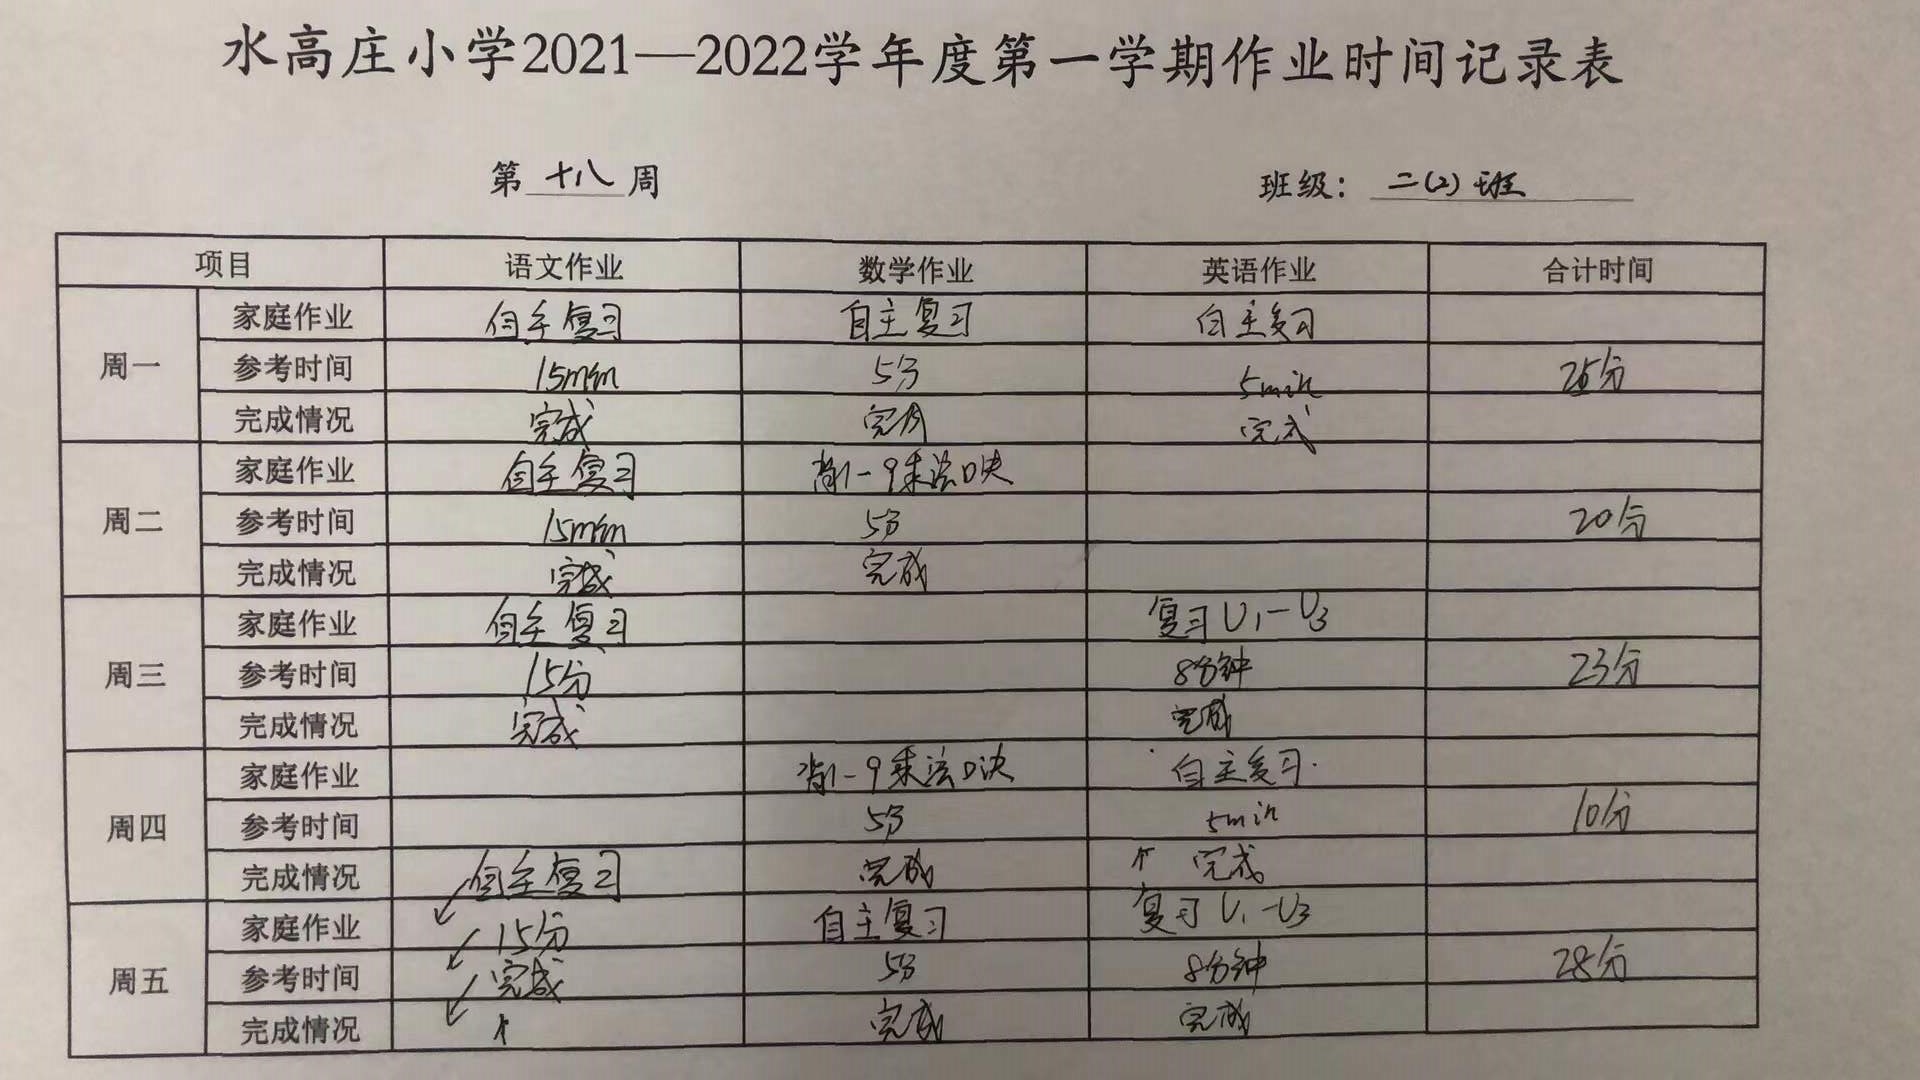 水高庄小学2021—2022学年度第一学期作业时间记录表
第 十八 周 班级: 二(2)班
项目 语文作业 数学作业 英语作业 合计时间
周一
家庭作业 自主复习 自主复习 自主复习
参考时间 15min 5分 5min 25分
完成情况 完成 完成 完成
周二
家庭作业 自主复习 背1-9乘法口决
参考时间 15min 5分 20分
完成情况 完成 完成
周三
家庭作业 自主复习 复习U1-U3
参考时间 15分 8分钟 23分
完成情况 完成 完成
周四
家庭作业 背1-9乘法口决 自主复习
参考时间 5分 5min 10分
完成情况 自主复习 完成 完成
周五
家庭作业 15分 自主复习 复习U1-U3
参考时间 完成 5分 8分钟 28分
完成情况 完成 完成